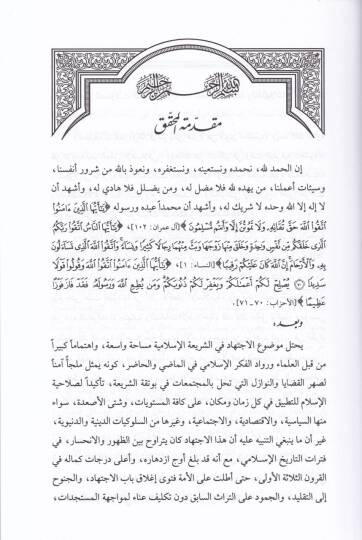 بسم الله الرحمن الرحيم
مقدمة المحقق
إن الحمد لله، نحمده ونستعينه، ونستغفره، ونعوذ بالله من شرور أنفسنا،
وسيئات أعملنا، من يهده لله فلا مضل له، ومن يضلل فلا هادي له، وأشهد أن
لا إله إلا الله وحده لا شريك له، وأشهد أن محمداً عبده ورسوله ﴿يَٰٓأَيُّهَا ٱلَّذِينَ ءَامَنُوا۟
ٱتَّقُوا۟ ٱللَّهَ حَقَّ تُقَاتِهِۦ وَلَا تَمُوتُنَّ إِلَّا وَأَنتُم مُّسْلِمُونَ﴾ [آل عمران: ١٠٢]، ﴿يَٰٓأَيُّهَا ٱلنَّاسُ ٱتَّقُوا۟ رَبَّكُمُ
ٱلَّذِى خَلَقَكُم مِّن نَّفْسٍ وَٰحِدَةٍ وَخَلَقَ مِنْهَا زَوْجَهَا وَبَثَّ مِنْهُمَا رِجَالًا كَثِيرًا وَنِسَآءً وَٱتَّقُوا۟ ٱللَّهَ ٱلَّذِى تَسَآءَلُونَ
بِهِۦ وَٱلْأَرْحَامَ إِنَّ ٱللَّهَ كَانَ عَلَيْكُمْ رَقِيبًا﴾ [النساء: ١]، ﴿يَٰٓأَيُّهَا ٱلَّذِينَ ءَامَنُوا۟ ٱتَّقُوا۟ ٱللَّهَ وَقُولُوا۟ قَوْلًا
سَدِيدًا ۝ يُصْلِحْ لَكُمْ أَعْمَٰلَكُمْ وَيَغْفِرْ لَكُمْ ذُنُوبَكُمْ وَمَن يُطِعِ ٱللَّهَ وَرَسُولَهُۥ فَقَدْ فَازَ فَوْزًا
عَظِيمًا﴾ [الأحزاب: ٧٠-٧١].
وبعد؛
يحتل موضوع الاجتهاد في الشريعة الإسلامية مساحة واسعة، واهتماماً كبيراً
من قبل العلماء ورواد الفكر الإسلامي في الماضي والحاضر، كونه يمثل ملجأ آمناً
لصهر القضايا والنوازل التي تحل بالمجتمعات في بوتقة الشريعة، تأكيداً لصلاحية
الإسلام للتطبيق في كل زمان ومكان، على كافة المستويات، وشتى الأصعدة، سواء
منها السياسية، والاقتصادية، والاجتماعية، وغيرها من السلوكيات الدينية والدنيوية،
غير أن ما ينبغي التنبيه عليه أن هذا الاجتهاد كان يتراوح بين الظهور والانحسار، في
فترات التاريخ الإسلامي، مع أنه قد بلغ أوج ازدهاره، وأعلى درجات كماله في
القرون الثلاثة الأولى، حتى أطلت على الأمة فتوى إغلاق باب الاجتهاد، والجنوح
إلى التقليد، والجمود على التراث السابق دون تكليف عناء لمواجهة المستجدات،